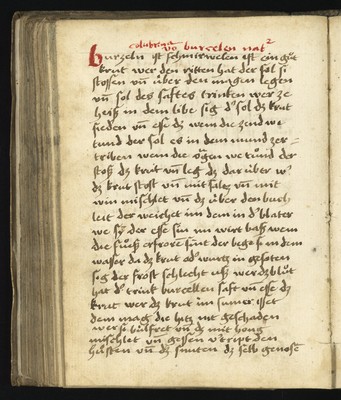 vō burcelen nat
burzeln ist schmirwelen ist ein gůt
krut wer den ritten hat der sol si
stossen vn̄ über den magen legen
vn̄ sol des saftes trinken wer ze
heiß in dem libe sig d' sol dz krut
sieden vn̄ esse dz wem die zend we
tund der sol es in dem mund zer
triben wem die ögen we tůnd der
stoß dz krut vn̄ leg dz dar über w'
dz krut stost vn̄ mit salcz vn̄ mit
win mischlet vn̄ dz über den buch
leit der weichet im dem in d' blater
we sy der esse sin im wirt baß wem
die füeß erfrore sint der bege si in dem
wasser da dz krut od' wurcz in gesoten
sig der frost schlecht uß wer dz blůt
hat d' trink burcellen saft vn̄ esse dz
krut wer dz krut im sumer isset
dem mag die hitz nit geschaden
wer si bulfret vn̄ dz mit hong
mischlet vn̄ gessen v'tript den
hůsten vn̄ dz selb genose